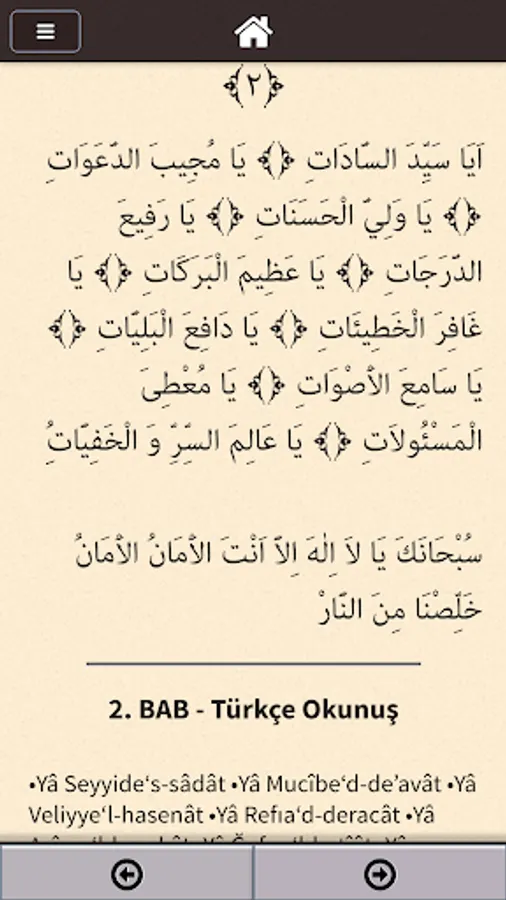 ﴿٢﴾
اَيَا سَيِّدَ السَّادَاتِ ﴿﴾ يَا مُجِيبَ الدَّعَوَاتِ
﴿﴾ يَا وَلِيَّ الْحَسَنَاتِ ﴿﴾ يَا رَفِيعَ
الدَّرَجَاتِ ﴿﴾ يَا عَظِيمَ الْبَرَكَاتِ ﴿﴾ يَا
غَافِرَ الْخَطِيئَاتِ ﴿﴾ يَا دَافِعَ الْبَلِيَّاتِ ﴿﴾
يَا سَامِعَ الْاَصْوَاتِ ﴿﴾ يَا مُعْطِىَ
الْمَسْئُولَاتِ ﴿﴾ يَا عَالِمَ السِّرِّ وَ الْخَفِيَّاتُِ
سُبْحَانَكَ يَا لَا اِلٰهَ اِلَّا اَنْتَ الْاَمَانُ الْاَمَانُ
خَلِّصْنَا مِنَ النَّارْ
2. BAB - Türkçe Okunuş
•Yâ Seyyide‘s-sâdât •Yâ Mucîbe‘d-de’avât •Yâ
Veliyye‘l-hasenât •Yâ Refıa‘d-deracât •Yâ